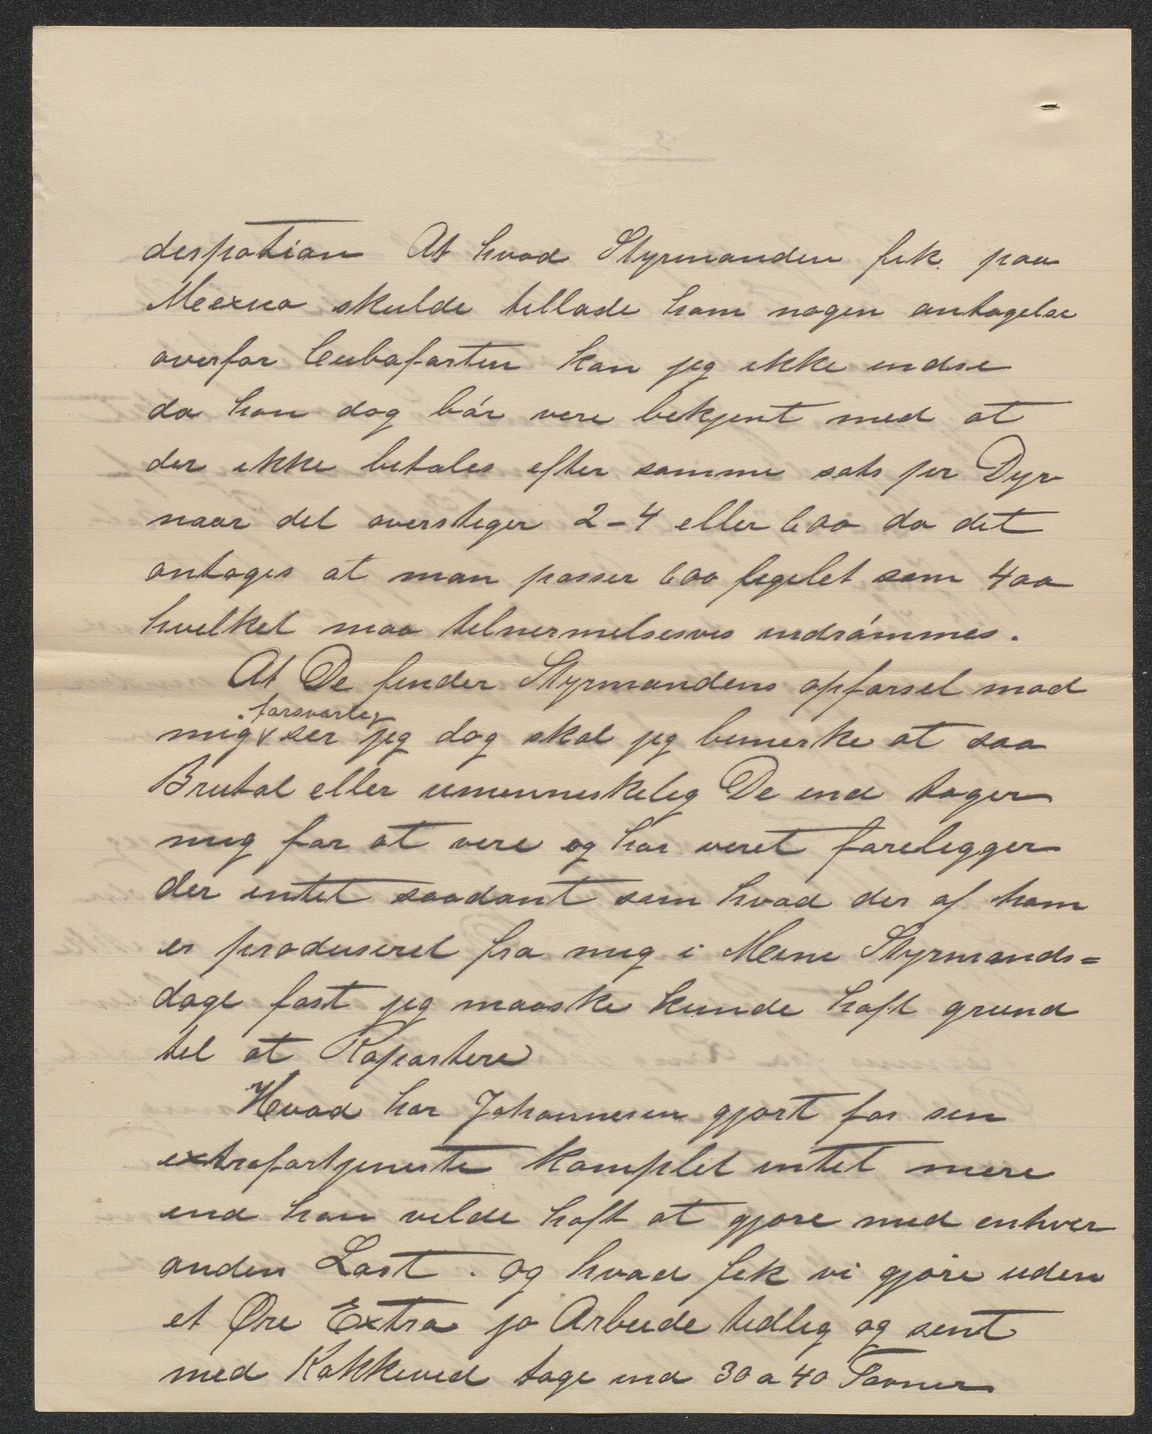 despotion At hvad Styrmanden fik paa
Mexico skulde tillade ham nogen antagelse
overfor Cubafarten kan jeg ikke indse
da han dog bör vere bekjent med at
der ikke betales efter samme sats per Dyr
naar det oversteger 2-4 eller 600 da det
antages at man passer 600 ligelet som 400
hvelket maa tilnermelsesves indrömmes.
At De finder Styrmandens opførsel mod
mig forsvarleg ser jeg dog skal jeg bemerke at saa
Brutal eller umenneskeleg De end tager
mig for at vere og har veret forelegger
der intet saadant som hvad der af ham
er produseret fra mig i Mine Styrmands=
dage fast jeg maaske kunde haft grund
tel at Raportere
Hvad har Johannesen gjort for sin
extrafortjeneste komplet intet mere
end han velde haft at gjøre med enhver
anden Last. og hvad fik vi gjöre uden
et Øre Extra jo Arbeide tedleg og sent
med Kokkeved tage ind 30 a 40 Favner